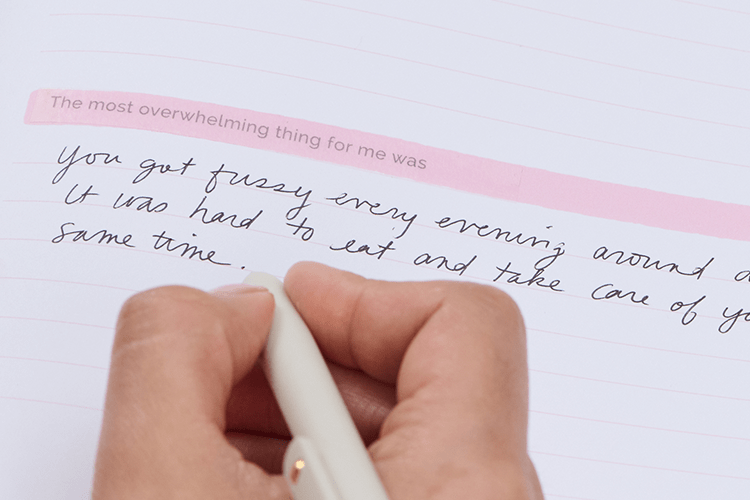 The most overwhelming thing for me was
You got fussy every evening around
It was hard to eat and take care of
same time.